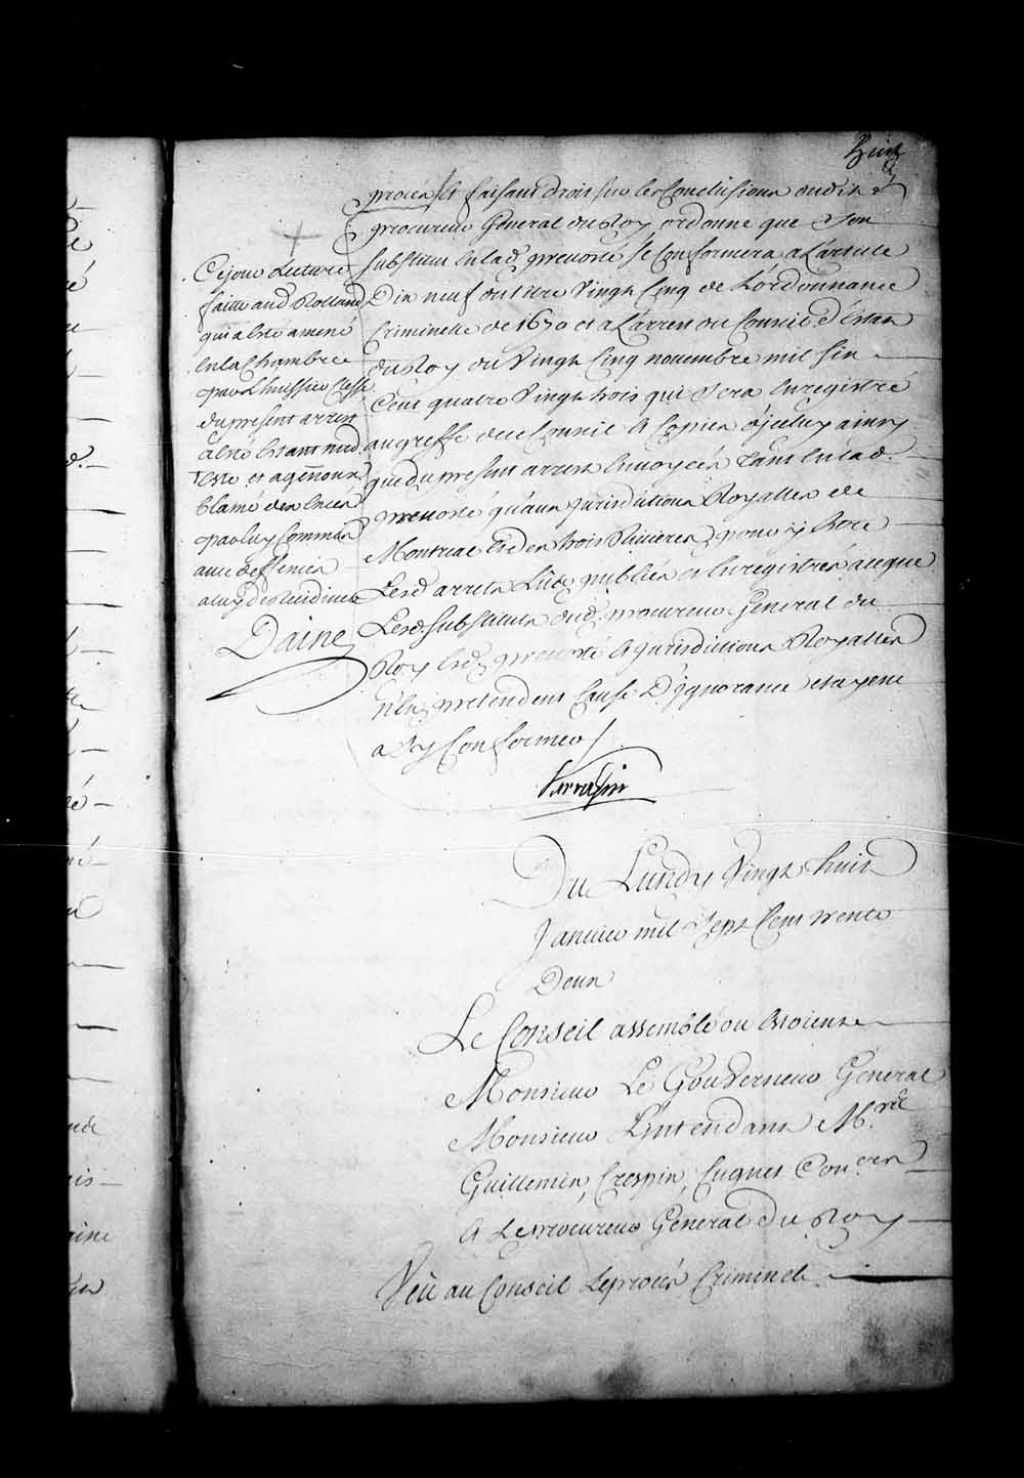 huit
procès et faisant droit sur les Conclusions dudit
procureur General du Roy ordonne que Son
substitut en lad. prevosté se Conformera a L'article
Dix neuf du titre Vingt Cinq de Lordonnance
Criminelle de 1670 et a L'arrest du Conseil d'Estat
du Roy du Vingt Cinq novembre mil six
Cent quatre Vingt trois qui Sera Enregistré
au greffe de ce Conseil & Copies d'jceluy ainsy
que du present arrest Envoyées tant En lad.
prevosté qu'aux jurisdictions Royalles de
Montreal et des trois Rivieres pour y Estre
Lesd. arrests Lûs publiés et Enregistrés a ce que
Lesd. substituts dud. procureur General du
Roy Esd. prevosté & jurisdictions Royalles
n'En pretendent Cause D'jgnorance et ayent
a S'y Conformer /.
Sarrasin
Ce jour Lecture
faitte aud Rolland
qui a Esté amené
En la Chambre
par L'huissier
du present arrest
a Esté Estant nud
teste et a genoux
blamé des Excès
par luy Commis
avec deffenses
a luy de Recidiver
Daine
Du Lundy Vingt huit
Janvier mil Sept Cent trente
Deux
Le Conseil assemblé ou Estoient
Monsieur Le Gouverneur General
Monsieur L'intendant M.rs
Guillemin, Crespin, Cugnet Con.ers
& Le procureur General du Roy
Veu au Conseil Le procès Criminel